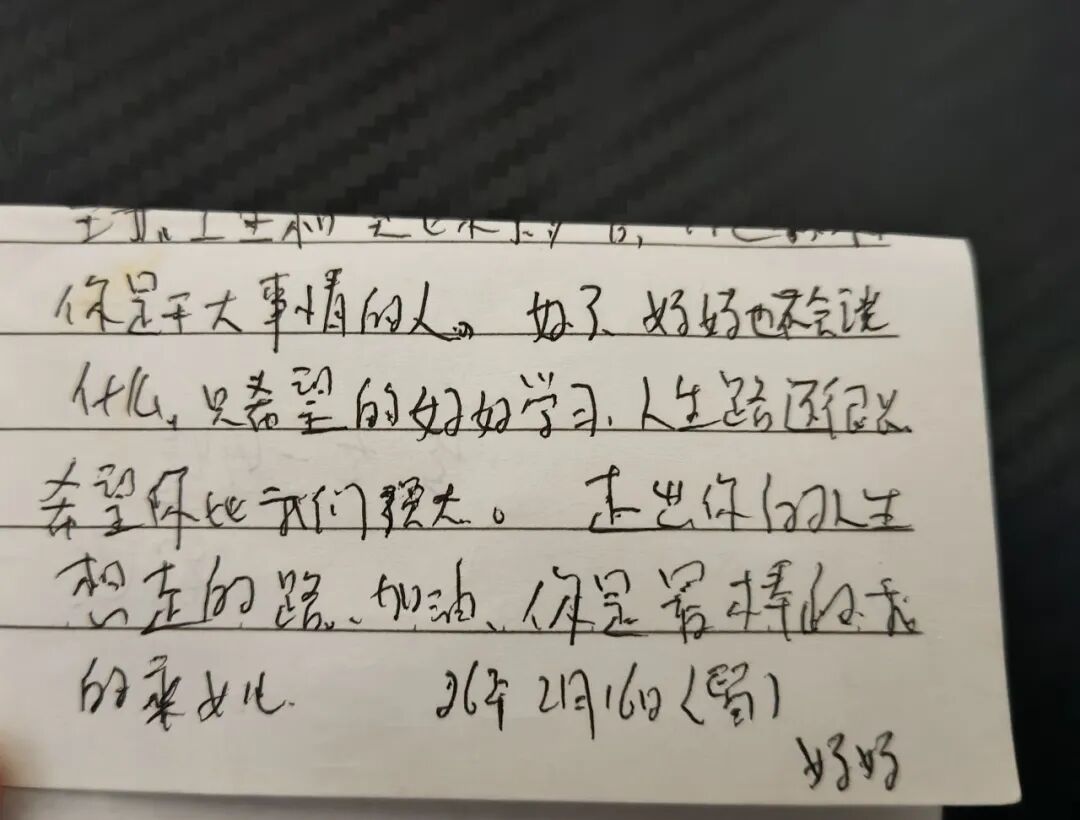 你是干大事情的人。好了、好好也不会说
什么,只希望的好好学习、人生路还很长
希望你比我们强大。 走出你的人生
想走的路、加油、你是最棒的我
的乖女儿. 26年2月16日()
好好